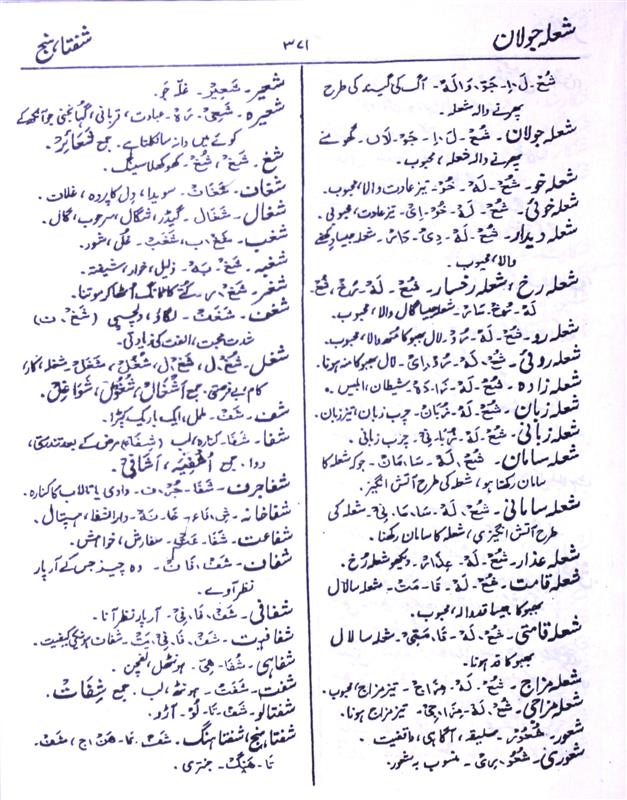 شعلہ جولان
۳۷۱
شفتا، ہنج
شُعْ۔ لَ۔ ا۔ جَوْ۔ وَالَہْ۔ آگ کی گیند کی طرح
پھرنے والا شعلہ۔
شعلہ جولان۔ شُعْ۔ لَ۔ ا۔ جَوْ۔ لَاں۔ گھومنے
پھرنے والا شعلہ، محبوب۔
شعلہ خو۔ شُعْ۔ لَہْ۔ خُوْ۔ تیز عادت والا، محبوب۔
شعلہ خوئی۔ شُعْ۔ لَہْ۔ خُوْ۔ اِیْ۔ تیز عادت، محبوبی۔
شعلہ دیدار۔ شُعْ۔ لَہْ۔ دِیْ۔ دَارْ۔ شعلہ جیسا دکھنے
والا، محبوب۔
شعلہ رخ، شعلہ رخسار۔ شُعْ۔ لَہْ۔ رُخْ، شُعْ
لَہْ۔ رُخْ۔ سَارْ۔ شعلہ جیسا گال والا، محبوب۔
شعلہ رو۔ شُعْ۔ لَہْ۔ رُوْ۔ لال بھبوکا منھ والا، محبوب۔
شعلہ روئی۔ شُعْ۔ لَہْ۔ رُوْ۔ اِیْ۔ لال بھبوکا منہ ہونا۔
شعلہ زادہ۔ شُعْ۔ لَہْ۔ زَا۔ دَہْ۔ شیطان، ابلیس۔
شعلہ زبان۔ شُعْ۔ لَہْ۔ زُبَانْ۔ چرب زبان، تیز زبان۔
شعلہ زبانی۔ شُعْ۔ لَہْ۔ زُبَا۔ نِیْ۔ چرب زبانی۔
شعلہ سامان۔ شُعْ۔ لَہْ۔ سَا۔ مَانْ۔ جو کہ شعلہ کا
سامان رکھتا ہو، شعلہ کی طرح آتش انگیز۔
شعلہ سامانی۔ شُعْ۔ لَہْ۔ سَا۔ مَا۔ نِیْ۔ شعلہ کی
طرح آتش انگیزی، شعلہ کا سامان رکھنا۔
شعلہ عذار۔ شُعْ۔ لَہْ۔ عِذَارْ۔ دیکھو شعلہ رخ۔
شعلہ قامت۔ شُعْ۔ لَہْ۔ قَا۔ مَتْ۔ شعلہ سا لال
بھبوکا جیسا قد والا، محبوب۔
شعلہ قامتی۔ شُعْ۔ لَہْ۔ قَا۔ مَتِیْ۔ شعلہ سا لال
بھبوکا قد ہونا۔
شعلہ مزاج۔ شُعْ۔ لَہْ۔ مِزَاجْ۔ تیز مزاج، محبوب۔
شعلہ مزاجی۔ شُعْ۔ لَہْ۔ مِزَا۔ جِیْ۔ تیز مزاج ہونا۔
شعور۔ شُعُوْرْ۔ سلیقہ، آگاہی، واقفیت۔
شعوری۔ شُعُوْ۔ رِیْ۔ منسوب بہ شعور۔
شعیر۔ شَعِیْرْ۔ غلّہ جَو۔
شعیرہ۔ شَعِیْ۔ رَہْ۔ عبادت، قربانی، گہانجنی جو آنکھ کے
کوئے میں دانہ سا نکلتا ہے۔ جمع شَعَائِرْ۔
شغ۔ شَغْ، شُغْ۔ کھوکھلا سینگ۔
شغاف۔ شَغَافْ۔ سویدا، دل کا پردہ، غلاف۔
شغال۔ شَغَالْ۔ گیدڑ، شگال، سرخوب، گال۔
شغب۔ شَغْ، بْ، شَغَبْ۔ غُل، شور۔
شغبہ۔ شَغْ۔ بَہْ۔ ذلیل، خوار، شیفتہ۔
شغر۔ شَغْ، رْ۔ کتے کا ٹانگ اٹھا کر موتنا۔
شغف۔ شَغَفْ۔ لگاؤ، دلچسپی (شَغْ، ف)
شدت محبت، الفت کی زیادتی۔
شغل۔ شُغْ، ل، شَغْ، ل، شُغُلْ، شَغَلْ۔ مشغلہ، کار،
کام، بے فرصتی۔ جمع اَشْغَالْ، شُغُوْلْ، شَوَاغِلْ۔
شف۔ شَفْ۔ ململ، ایک باریک کپڑا۔
شفا۔ شَفَا۔ کنارہ، لب (شِفَا،ءْ) مرض کے بعد تندرستی،
دوا۔ جمع اَشْفِیَہْ، اَشَافِیْ۔
شفا جرف۔ شَفَا۔ جُرْ، ف۔ وادی یا تالاب کا کنارہ۔
شفاخانہ۔ شِ، فَاءْ۔ خَا۔ نَہْ۔ دارالشفا، ہسپتال۔
شفاعت۔ شَفَا۔ عَتْ۔ سفارش، خواہش۔
شفاف۔ شَفْ، فَافْ۔ وہ چیز جس کے آر پار
نظر آوے۔
شفافی۔ شَفْ، فَا، فِیْ۔ آر پار نظر آنا۔
شفافیت۔ شَفْ، فَا، فِیْ، یَتْ۔ شفاف ہونے کی کیفیت۔
شفاہی۔ شِفَا۔ ہِیْ۔ ہونٹھل، لفچن۔
شفت۔ شَفَتْ۔ ہونٹھ، لب۔ جمع شِفَاتْ۔
شفتالو۔ شَفْ۔ تَا۔ لُوْ۔ آڑو۔
شفتا ہنج، شفتا ہنگ۔ شَفْ، تَا۔ ھَنْ، ج، شَفْ۔
تَا۔ ھَنْگ۔ جنتری۔